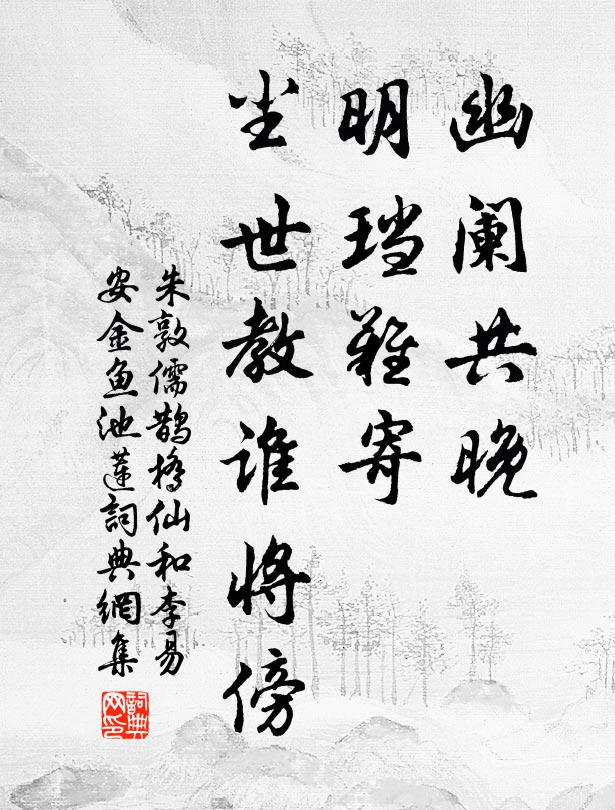 幽阑共晚
明珰难寄
尘世教谁将傍
朱敦儒鹊桥仙和李易
安金鱼池莲詞典網集
詞典網印